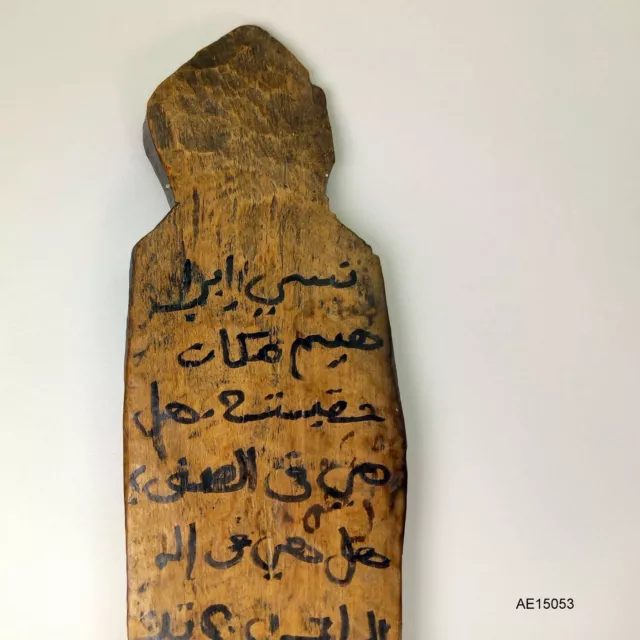 نسي إبرا
هيم مكان
حقيبته. هل
هي في الصف؟
هل هي في ال
AE15053